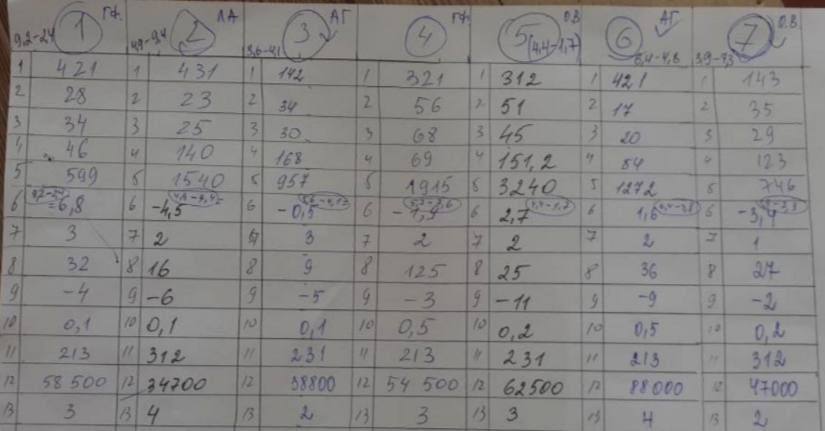 г.ф. Л.А АГ г.ф. О.В. АГ О.В.
9,2-2,4 1 4,9-9,4 2 3,6-4,1 3 4 5 (4,4-1,7) 6 7
1 421 1 431 1 142 1 321 1 312 1 421 1 143
2 28 2 23 2 34 2 56 2 51 2 17 2 35
3 34 3 25 3 30 3 68 3 45 3 20 3 29
4 46 4 140 4 168 4 69 4 151,2 4 84 4 123
5 599 5 1540 5 957 5 1915 5 3240 5 1272 5 746
6 6,8 6 -4,5 6 -0,5 6 6 2,7 6 1,6 6 -3,4
7 3 7 2 3 7 2 7 2 7 2 7 1
8 32 8 16 8 9 8 125 8 25 8 36 8 27
9 -4 9 -6 9 -5 9 -3 9 -11 9 -9 9 -2
10 0,1 10 0,1 10 0,1 10 0,5 10 0,2 10 0,5 10 0,2
11 213 11 312 11 231 11 213 11 231 11 213 11 312
12 58 500 12 34700 12 38800 12 54 500 12 62500 12 88000 12 47000
13 3 13 4 13 2 13 3 13 3 13 4 13 2